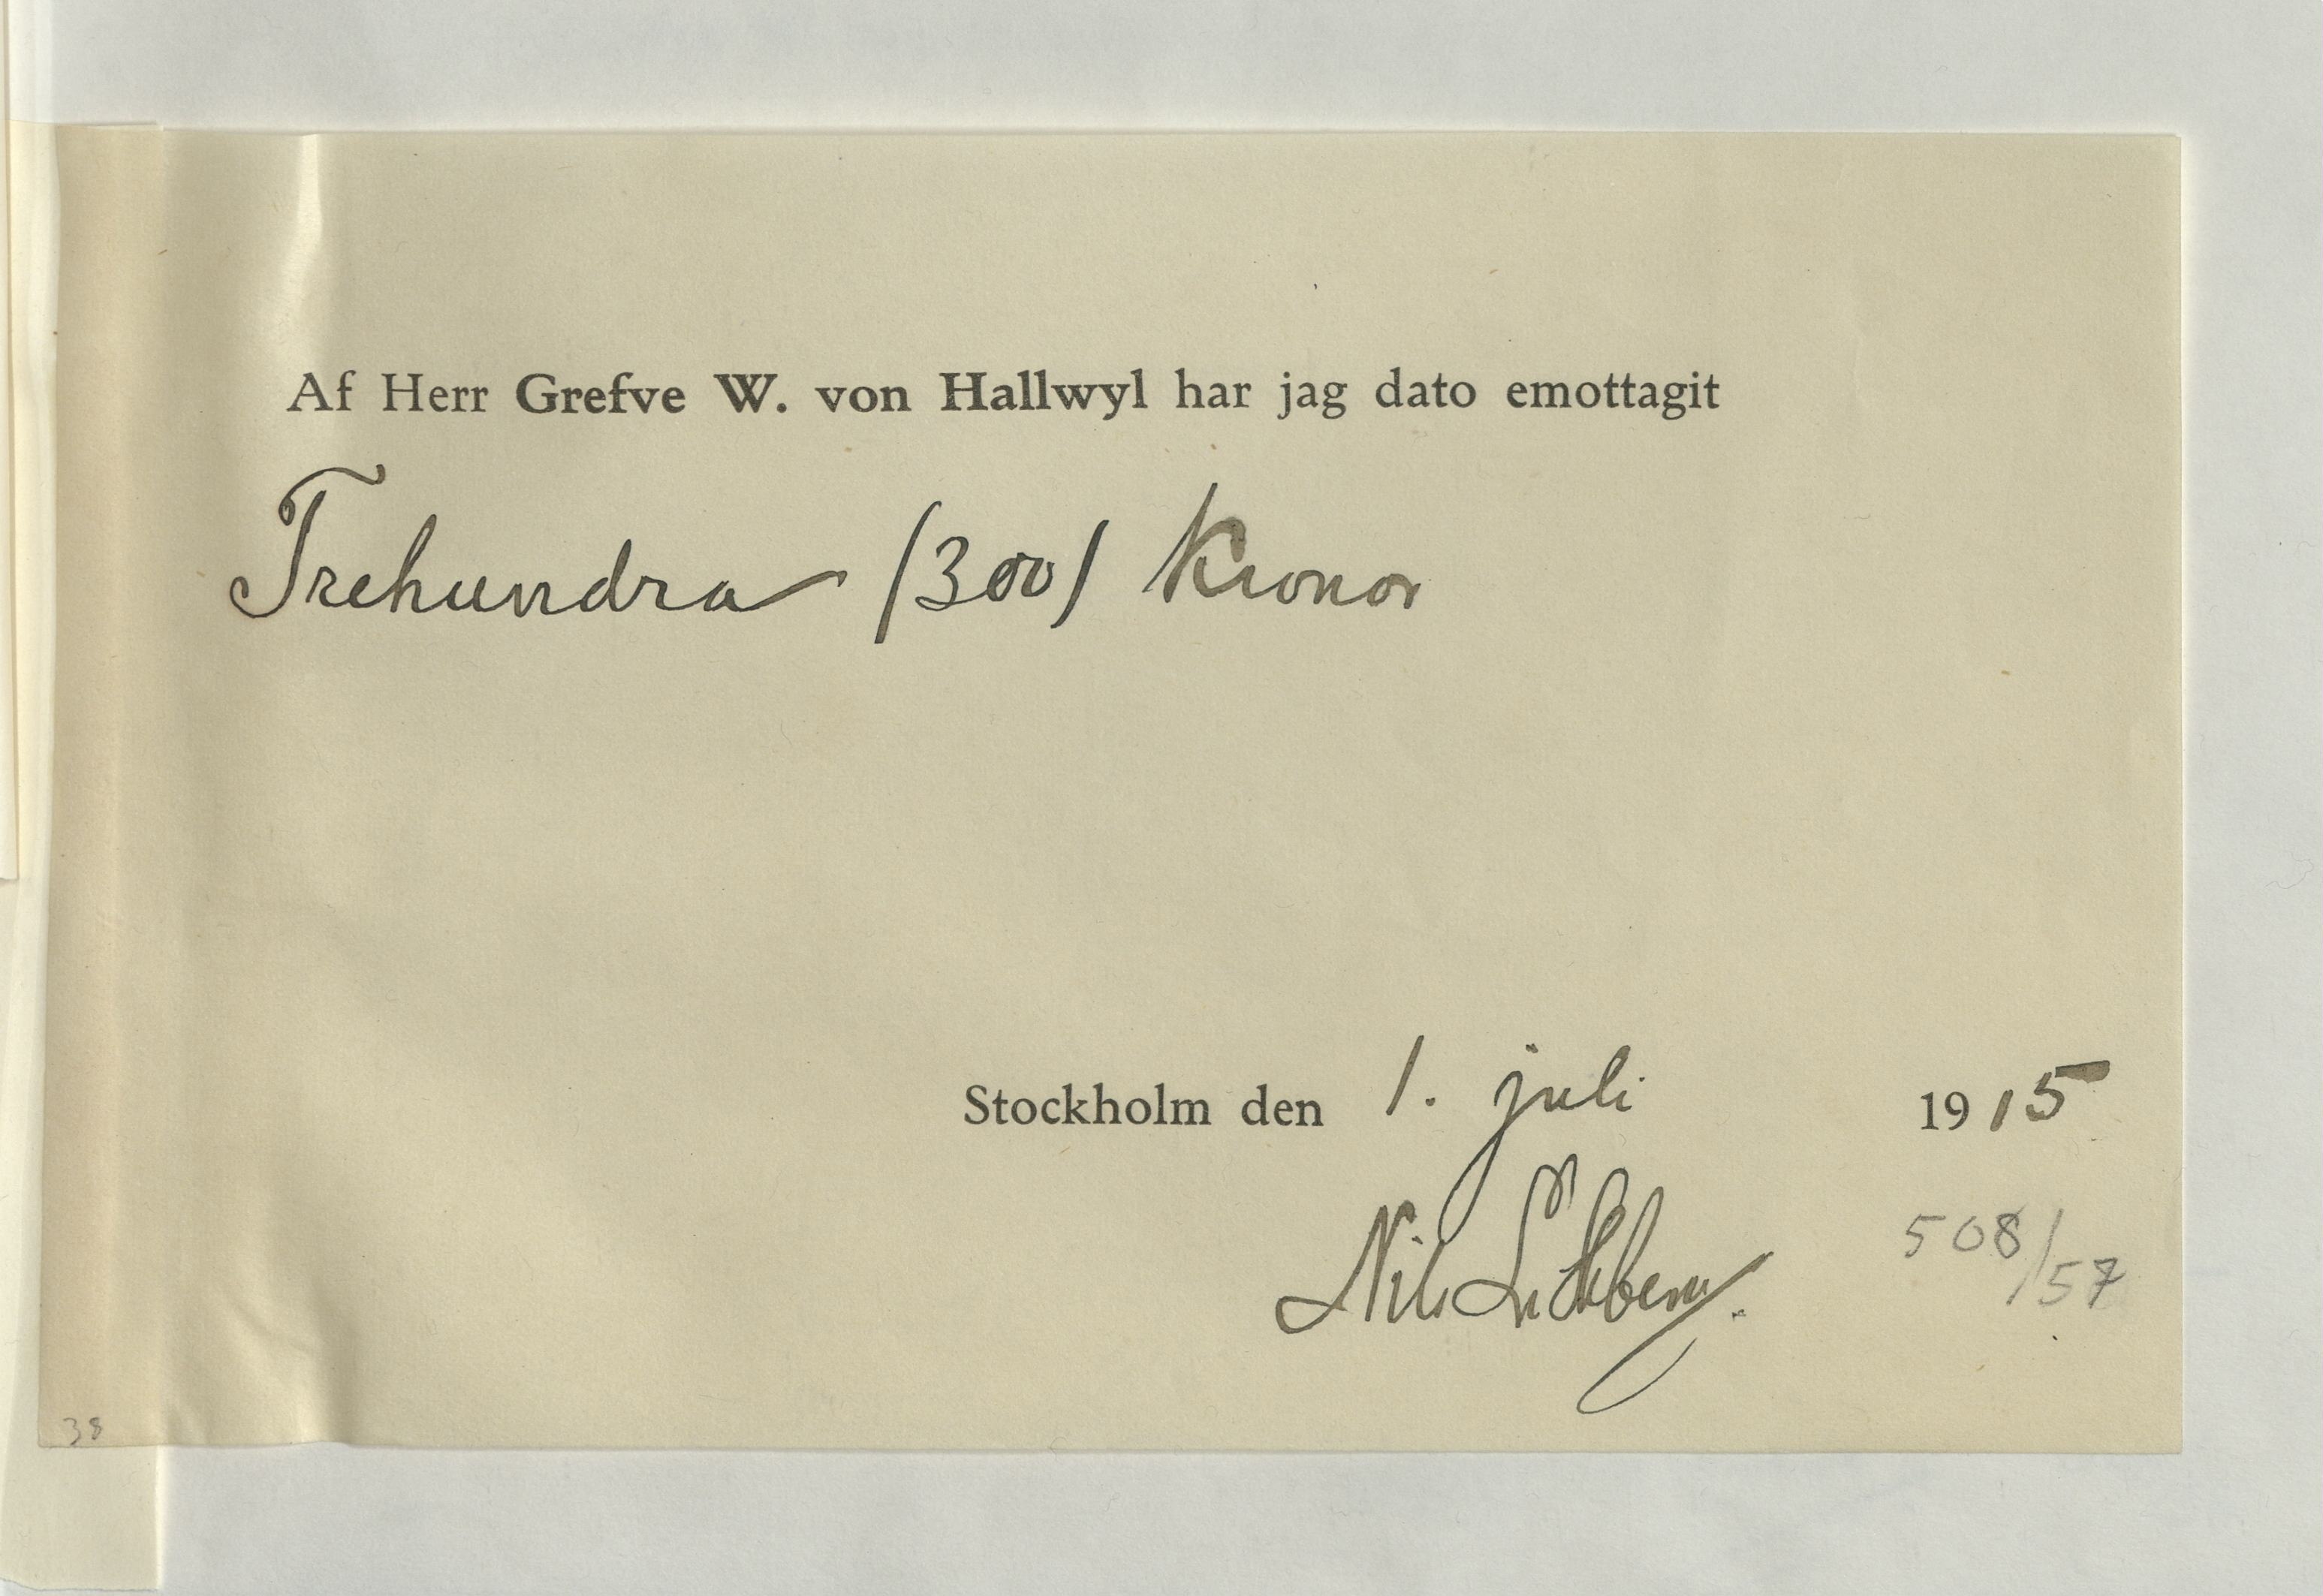 Af Herr Grefve W. von Hallwyl har jag dato emottagit
Trehundra /300/ Kronor
Stockholm den 1. juli 1915
Nils
508/57
38